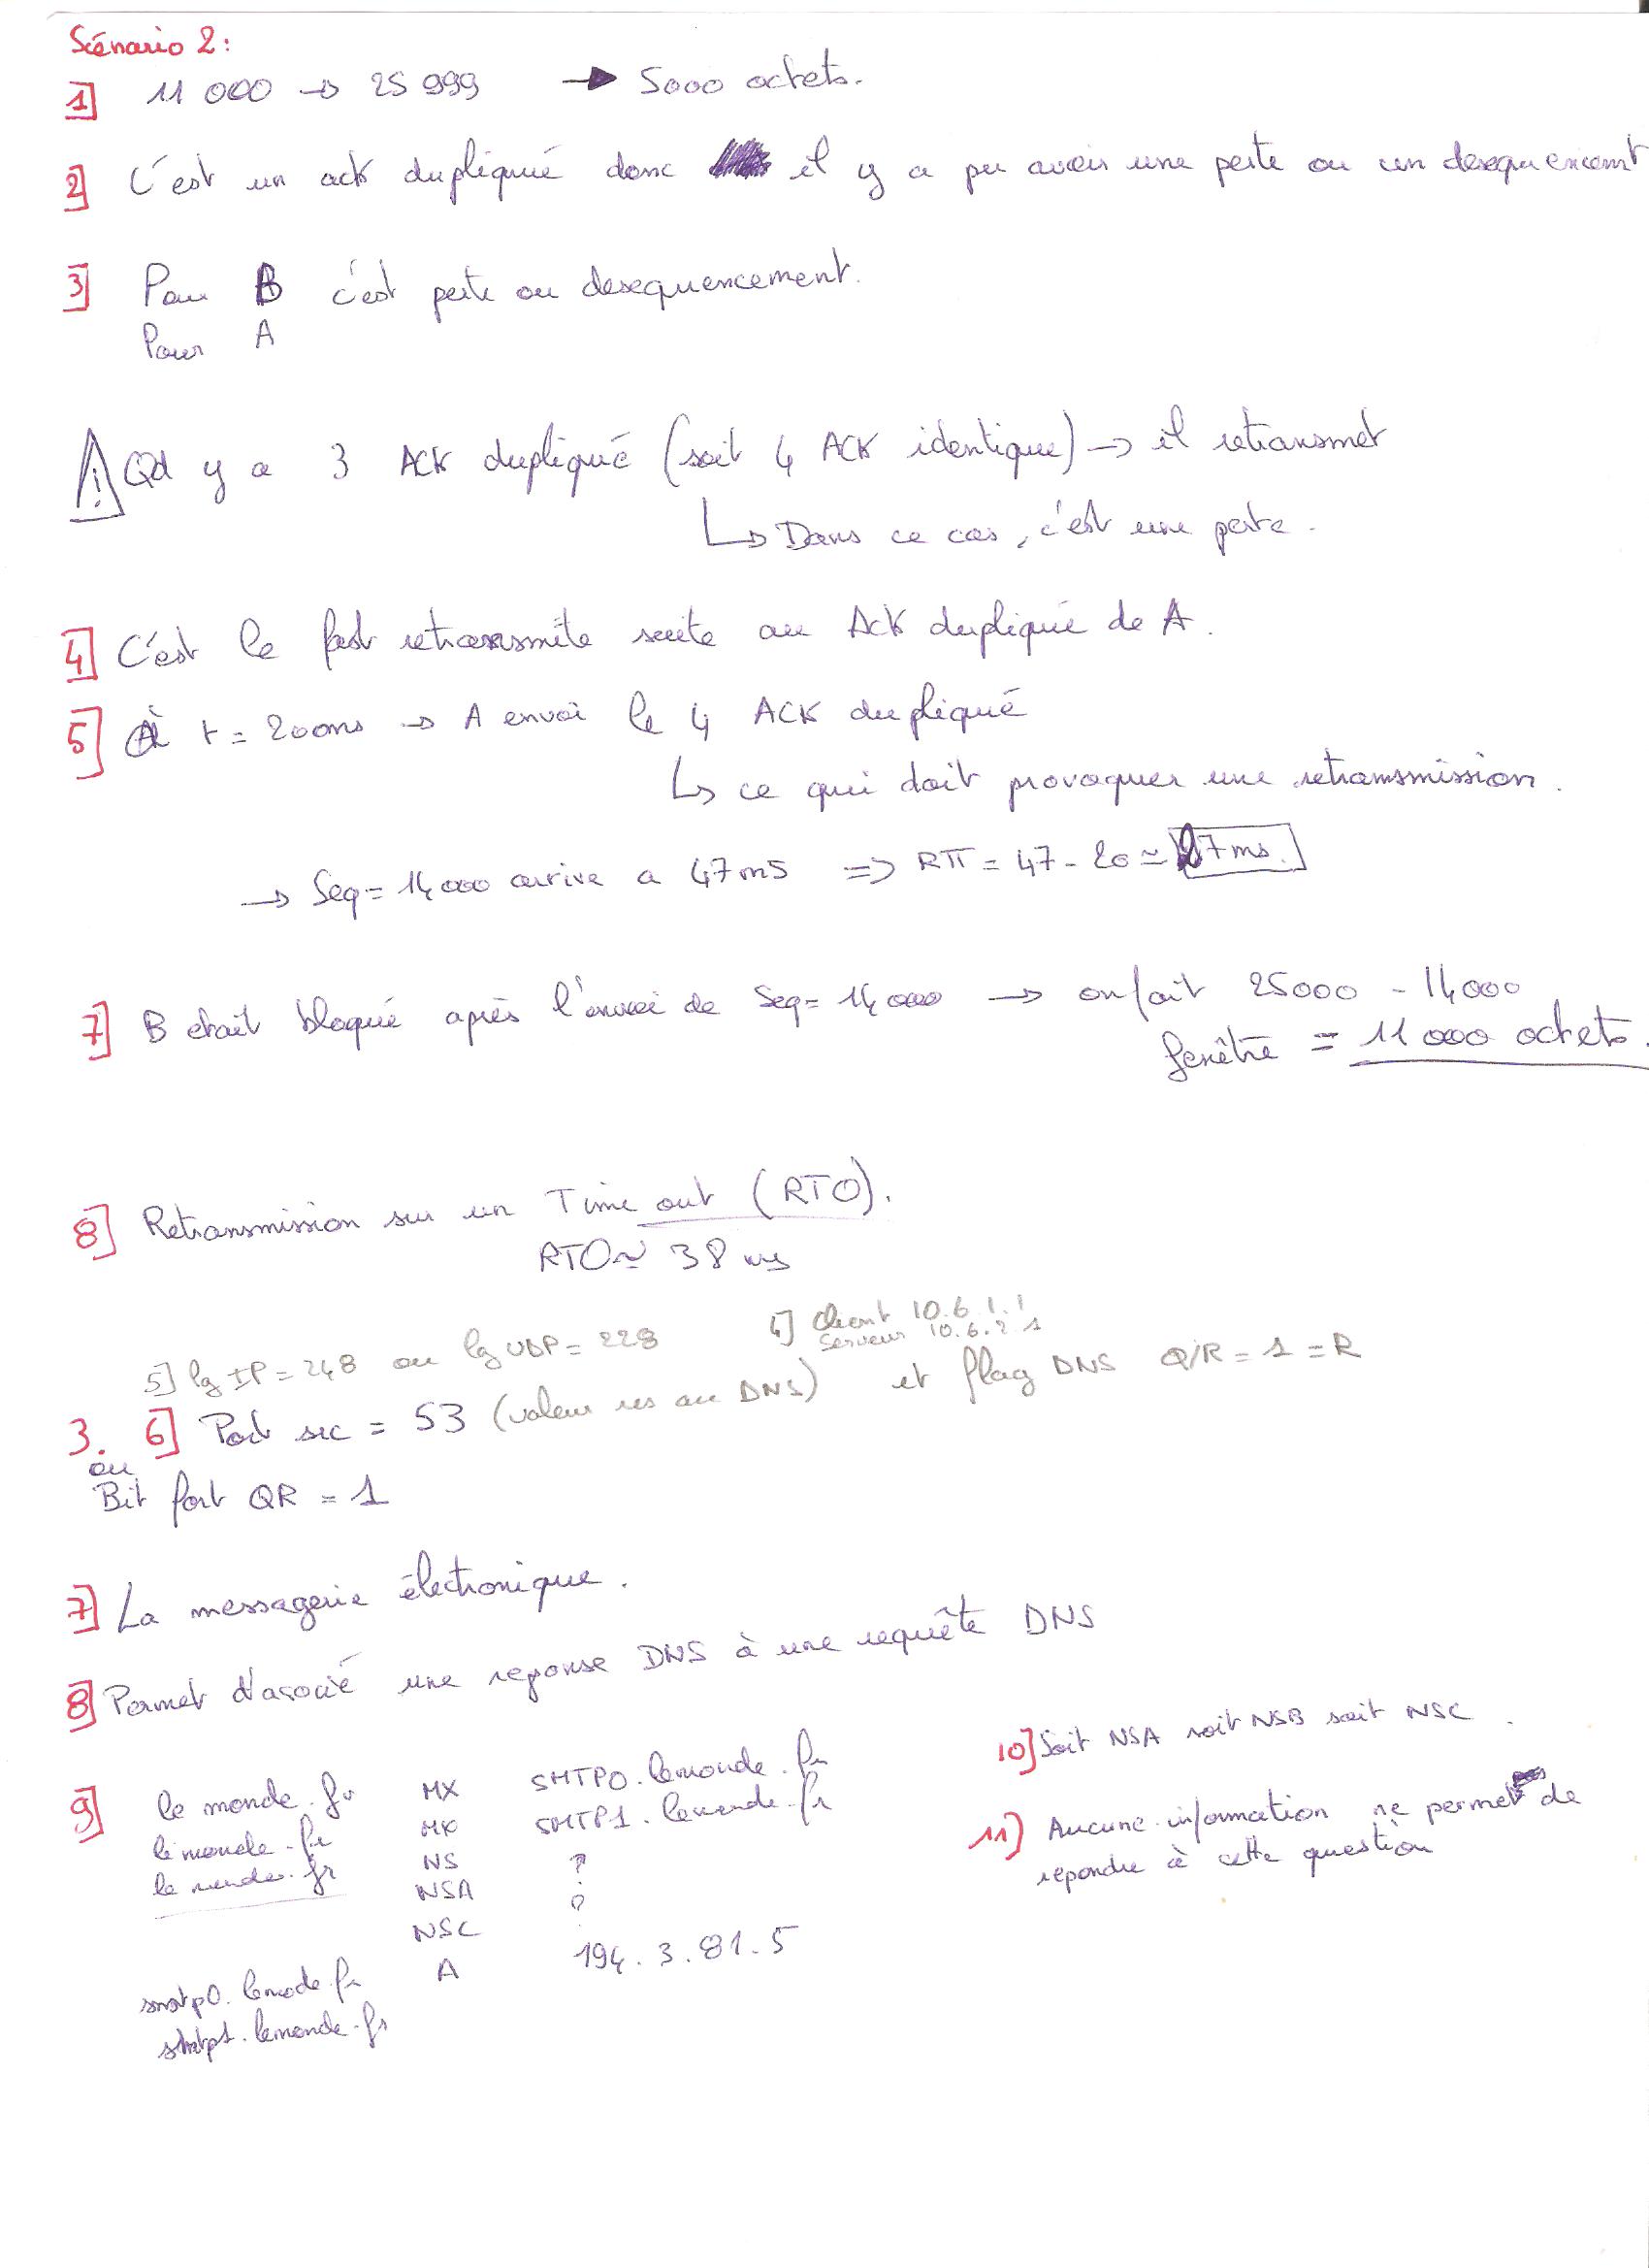 Scénario 2:
1] 11 000 → 25 999 → 5000 octets.
2] C'est un ack dupliqué donc il y a pu avoir une perte ou un desequencemt
3] Pour B c'est perte ou desequencement.
Pour A
⚠ Qd y a 3 ACK dupliqué (soit 4 ACK identique) → il retransmet
↳ Dans ce cas, c'est une perte.
4] C'est le fast retransmite suite au Ack dupliqué de A.
5] À t = 20ms → A envoi le 4 ACK dupliqué
↳ ce qui doit provoquer une retransmission.
→ Seq = 14000 arrive a 47ms => RTT = 47 - 20 ≃ 27 ms.
7] B etait bloqué après l'envoi de Seq = 14 000 → on fait 25000 - 14000
fenêtre = 11 000 octets.
8] Retransmission sur un Time out (RTO).
RTO ≃ 38 ms
5] lg IP = 248 ou lg UDP = 228
4] Client 10.6.1.1
Serveur 10.6.2.1
3. 6] Port src = 53 (valeur res au DNS) et flag DNS Q/R = 1 = R
ou
Bit fort QR = 1
7] La messagerie électronique.
8] Permet d'asocié une reponse DNS à une requête DNS
9] le monde.fr MX SMTP0.lemonde.fr
lemonde.fr MX SMTP1.lemonde.fr
le monde.fr NS ?
NSA ?
NSC
smtp0.lemode.fr A 194.3.81.5
smtp1.lemonde.fr
10] Soit NSA soit NSB soit NSC.
11) Aucune information ne permet de
repondre à cette question